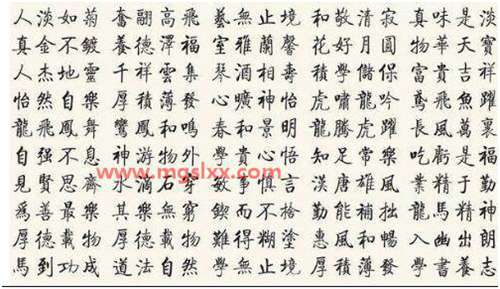 人淡如菊 奮翮高飛 藝無止境 和敬清寂 真味是淡
真金不鍍 養德澤福 室雅蘭馨 花好月圓 物華天寶
人杰地靈 千祥雲集 琴酒相壽 積學儲保 富貴吉祥
怡然自樂 厚積薄發 心曠神怡 虎嘯龍吟 鳶飛魚躍
龍飛鳳舞 鸞鳳和鳴 春和景明 龍騰虎躍 長風萬裏
自强不息 神游物外 學貴心悟 知足常樂 吃虧是福
見賢思齊 水滴石穿 敏事慎言 漢唐雄風 業精於勤
爲善最樂 其樂無窮 鍥而不捨 勤能補拙 龍馬精神
厚德載物 厚德載物 難得糊塗 惠風和暢 入幽出朗
馬到功成 道法自然 學無止境 厚積薄發 學書養志
www.mgslxx.com